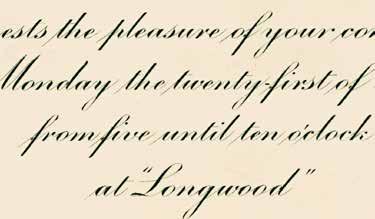 ests the pleasure of your con
Monday the twenty-first of
from five until ten o'clock
at "Longwood"